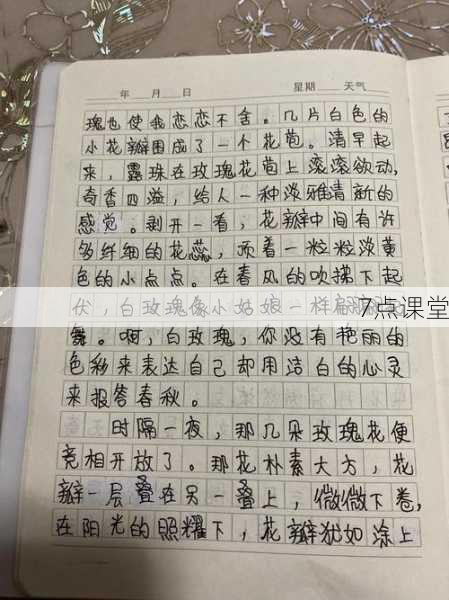 年 月 日 星期 天气
瑰也使我恋恋不舍。几片白色的
小花瓣围成了一个花苞。清早起
来，露珠在玫瑰花苞上滚滚欲动，
奇香四溢，给人一种淡雅清新的
感觉。剥开一看，花瓣中间有许
多纤细的花蕊，顶着一粒粒淡黄
色的小点点。在春风的吹拂下起
伏，白玫瑰像小姑娘一样
7点课堂
舞。啊，白玫瑰，你没有艳丽的
色彩来表达自己却用洁白的心灵
来报答春秋。
时隔一夜，那几朵玫瑰花便
竞相开放了。那花朴素大方，花
瓣一层叠在另一叠上，微微下卷，
在阳光的照耀下，花瓣犹如涂上